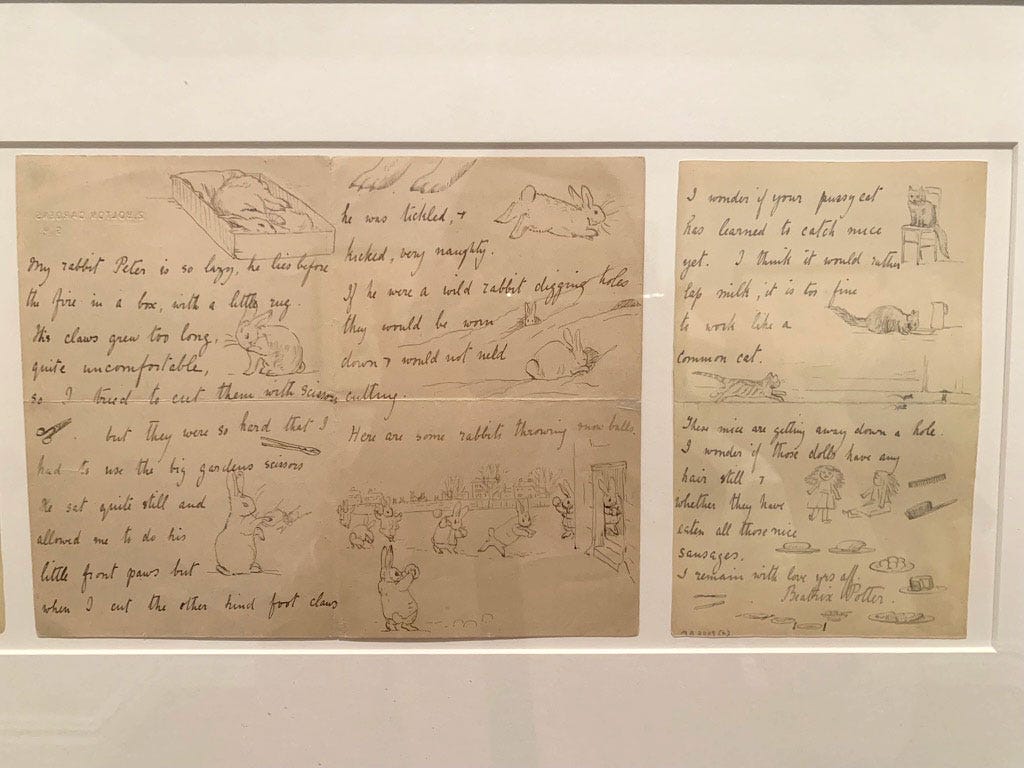 2, BOLTON GARDENS,
S.W.
My rabbit Peter is so lazy, he lies before
the fire in a box, with a little rug.
His claws grew too long,
quite uncomfortable,
so I tried to cut them with scissors
but they were so hard that I
had to use the big gardens scissors
He sat quite still and
allowed me to do his
little front paws but
when I cut the other hind foot claws
he was tickled, &
kicked, very naughty.
If he were a wild rabbit digging holes
they would be worn
down & would not need
cutting.
Here are some rabbits throwing snow balls.
I wonder if your pussy cat
has learned to catch mice
yet. I think it would rather
lap milk, it is too fine
to work like a
common cat.
These mice are getting away down a hole.
I wonder if those dolls have any
hair still &
whether they have
eaten all those nice
sausages.
I remain with love yrs aff.
Beatrix Potter.
MA 2009